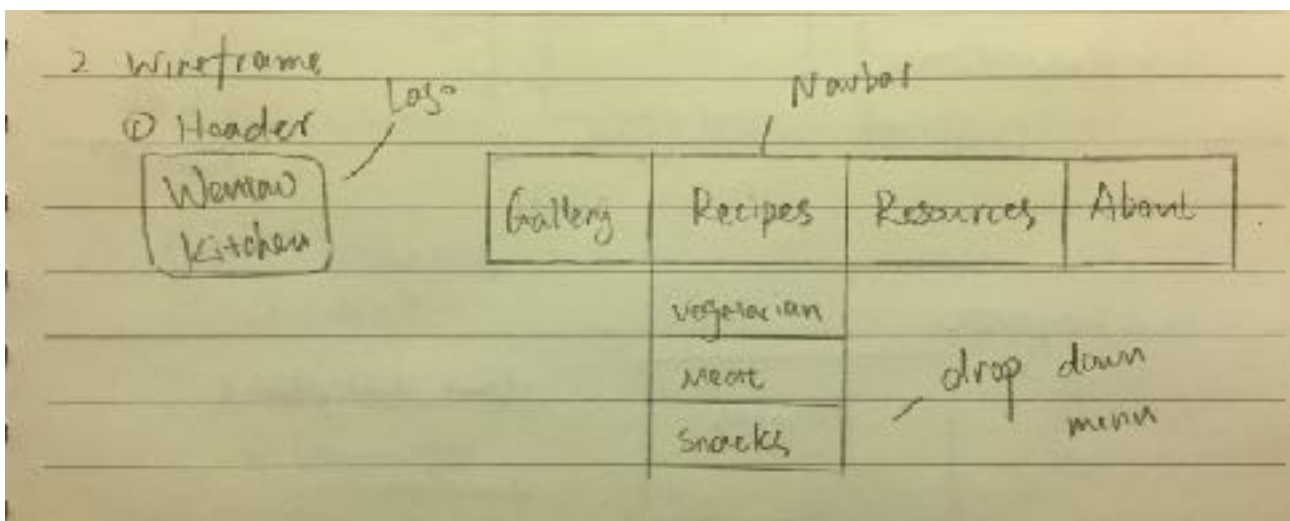 2 Wireframe
① Header
Logo
Navbar
Kitchen
Gallery
Recipes
Resources
About
vegetarian
Meat
Snacks
drop down
menu